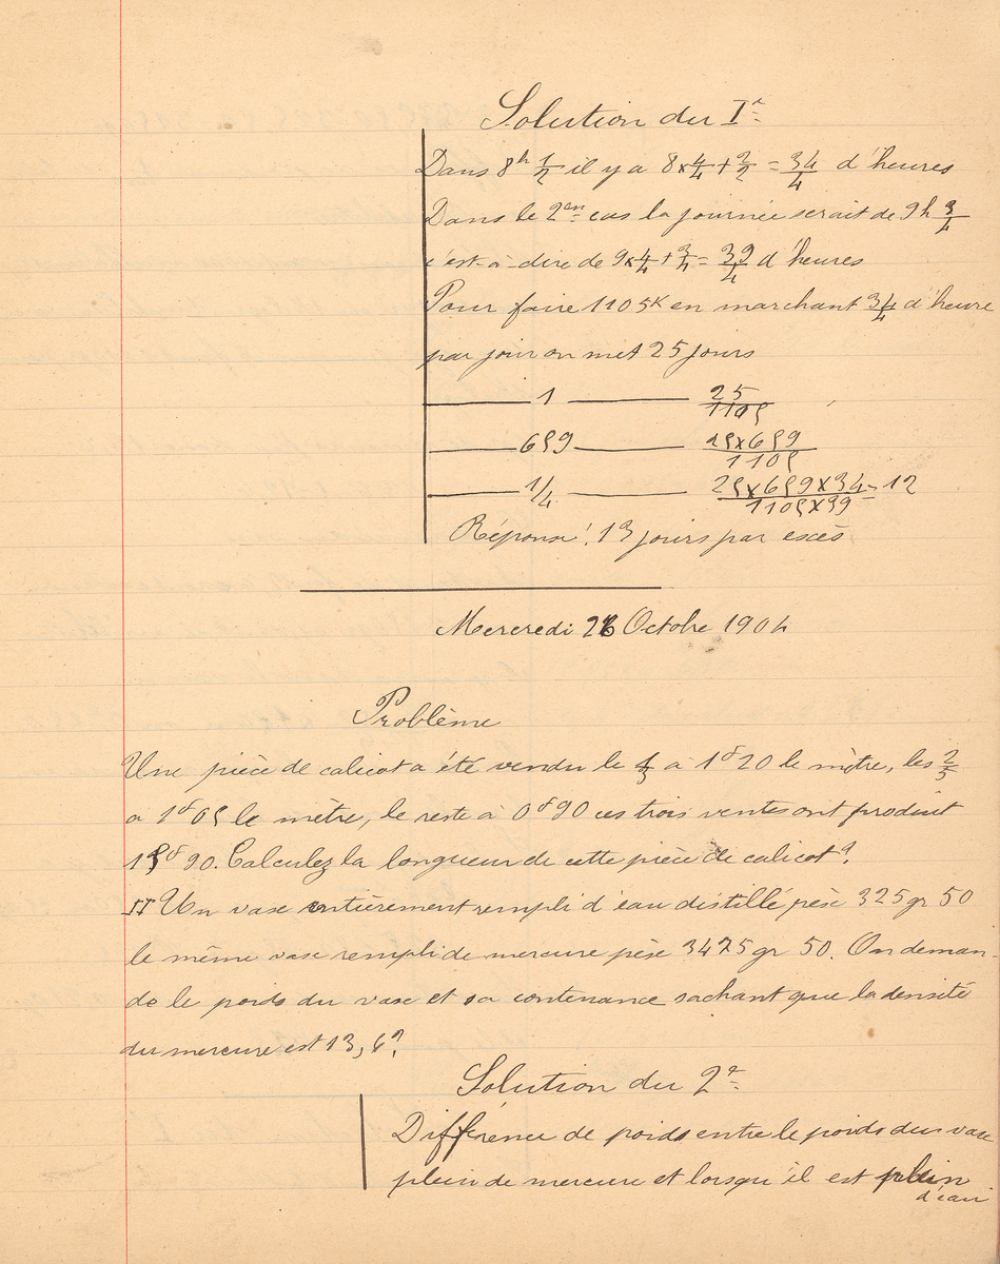 Solution du Ier
Dans 8h 1/2 il y a 8 x 4/4 + 2/2 = 34/4 d'heures
Dans le 2en cas la journée serait de 9h 3/4
c'est-à-dire de 9 x 4/4 + 3/4 = 39/4 d'heures
Pour faire 1105K en marchant 34/4 d'heure
par jour on met 25 jours
1 25/1105
659 25x659/1105
1/4 25x659x34/1105x39 = 12
Réponse : 13 jours par excès
Mercredi 26 Octobre 1904
Problème
Une pièce de calicot a été vendu le 1/3 à 1f20 le mètre, les 2/5
a 1f05 le mètre, le reste à 0f90 ces trois ventes ont produit
15f90. Calculez la longueur de cette pièce de calicot?
II Un vase entièrement rempli d'eau distillé pèse 325 gr 50
le même vase rempli de mercure pèse 3475 gr 50. On deman-
de le poids du vase et sa contenance sachant que la densité
du mercure est 13,6?
Solution du 2e
Différence de poids entre le poids du vase
plein de mercure et lorsqu'il est plein
d'eau